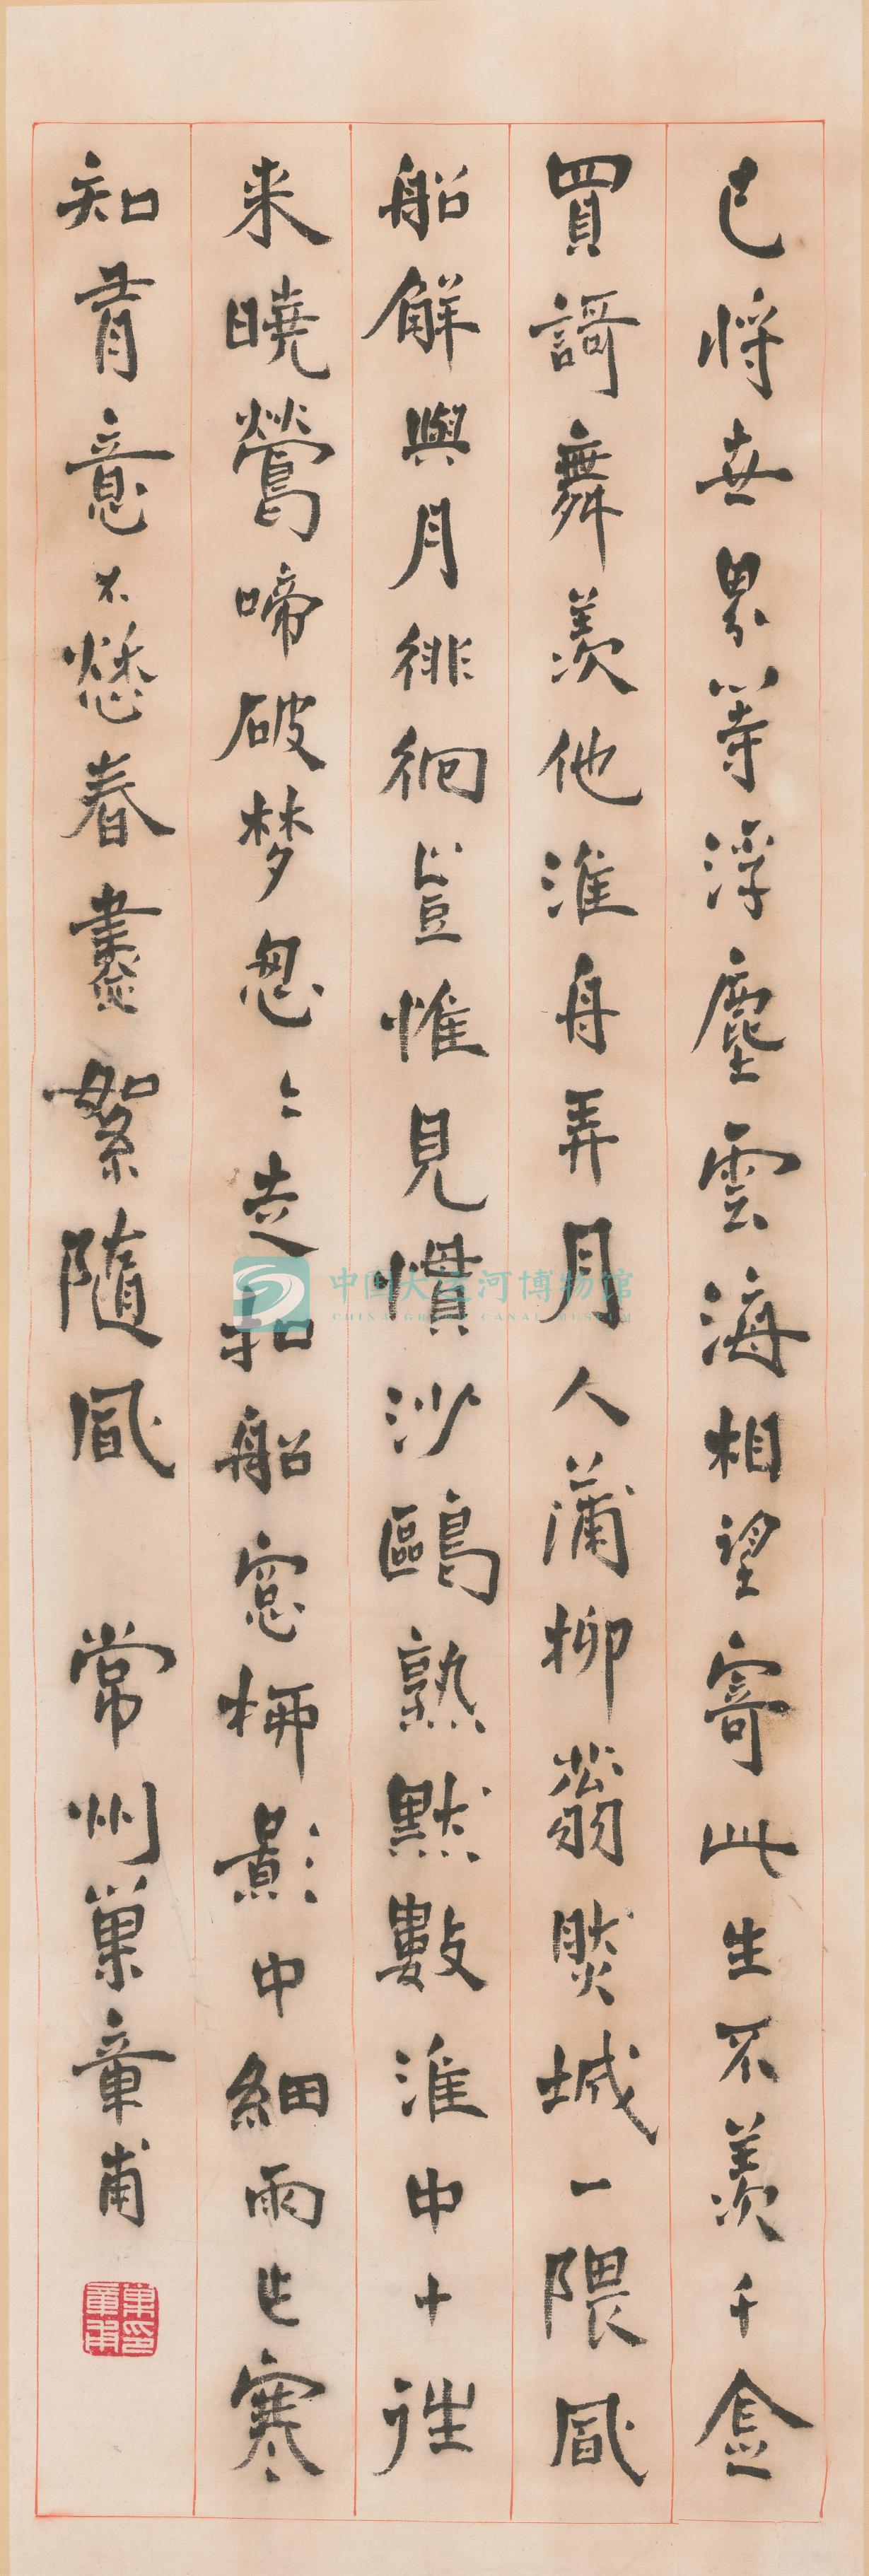 已将世界等浮塵雲海相望寄此生不羨千金
買謌舞羨他淮舟弄月人蒲柳蓊然城一隈風
船解與月徘徊豈惟見慣沙鷗熟默數淮中十往
来曉鶯啼破梦怱〻走和船窓栴影中細雨乍寒
知有意不愁春盡絮隨風 常州巢章甫
巢章甫印
中国大运河博物馆
CHINA GRAND CANAL MUSEUM